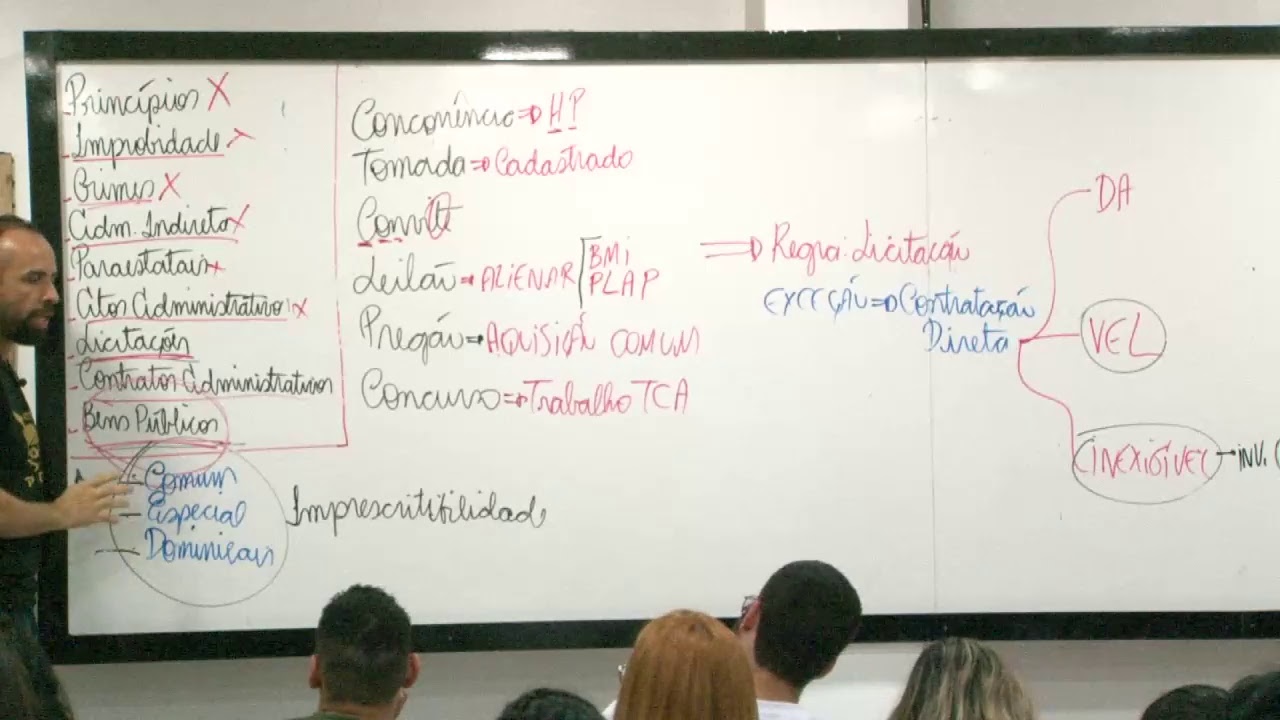 Princípios X
Improbidade X
Crimes X
Adm. Indireta X
Paraestatais X
Atos Administrativos X
Licitações
Contratos Administrativos
Bens Públicos
Comum
Especial
Dominicais
Imprescritibilidade
Concorrência => HP
Tomada => Cadastrado
Convite
Leilão => ALIENAR BMi
PLAP
Pregão => AQUISIÇÃO COMUM
Concurso => Trabalho TCA
=> Regra: Licitação
EXCEÇÃO => Contratação
Direta
DA
VEL
INEXIGÍVEL → INV.